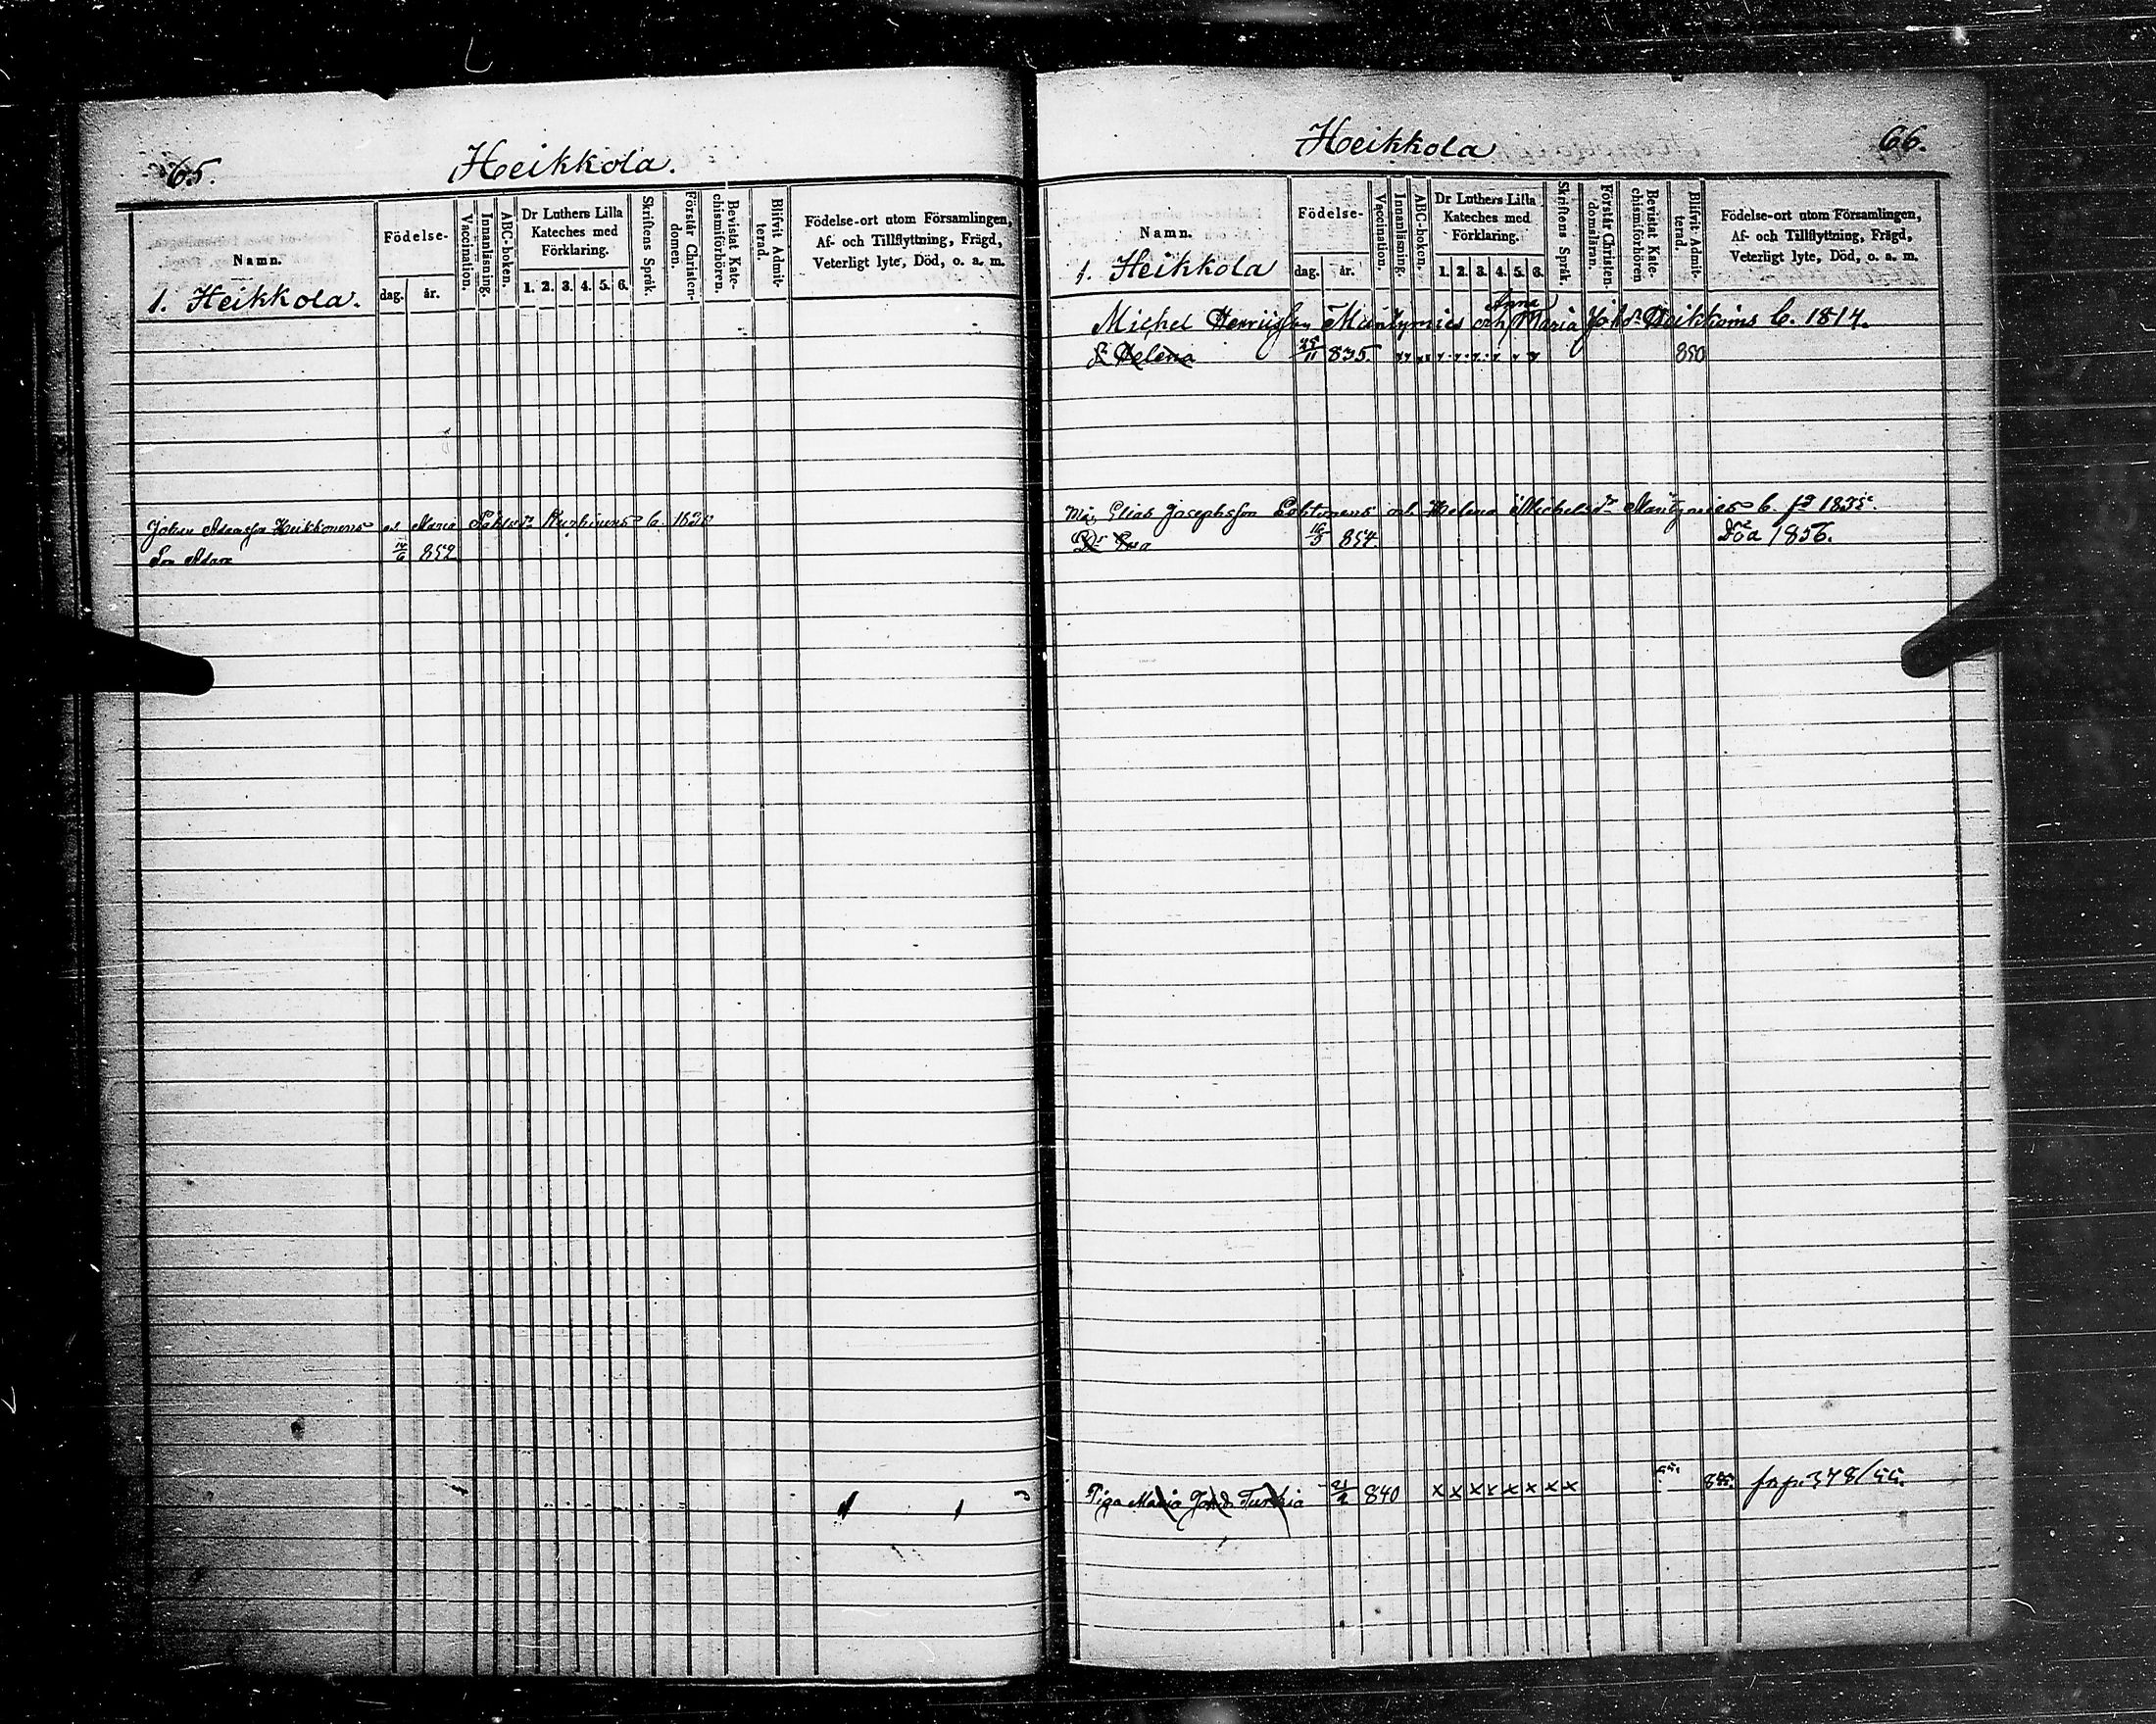 65.
Heikkola.
Namn.
Födelse-
dag.
år.
Vaccination.
Innanläsning.
ABC-boken.
Dr Luthers Lilla
Kateches med
Förklaring.
1. 2. 3. 4. 5. 6.
Skriftens Språk.
Förstår Christen-
domen.
Bevistat Kate-
chismiförhören.
Blifvit Admit-
terad.
Födelse-ort utom Församlingen,
Af- och Tillflyttning, Frägd,
Veterligt lyte, Död, o. a. m.
1. Heikkola.
Johan Adamsson Heikkonens Maria
Son Adam 852
Heikkola
66.
Namn.
Födelse-
dag. år.
Vaccination.
Innanläsning.
ABC-boken.
Dr Luthers Lilla
Kateches med
Förklaring.
1. 2. 3. 4. 5. 6.
Skriftens Språk.
Förstår Christen-
domsläran.
Bevistat Kate-
chismiförhören
Blifvit Admit-
terad
Födelse-ort utom Församlingen,
Af- och Tillflyttning, Frägd,
Veterligt lyte, Död, o. a. m.
1. Heikkola
Anna
Michel Henricsson Mäntymies och Maria Heikkoins b. 1814.
Helena 25/11 835. 850
Elias Josephsson och Helena Michelsdr Mäntymies b. 1835
854. Död 1856.
Piga Maria Turkia 840 x x x x x x x x 378/55.